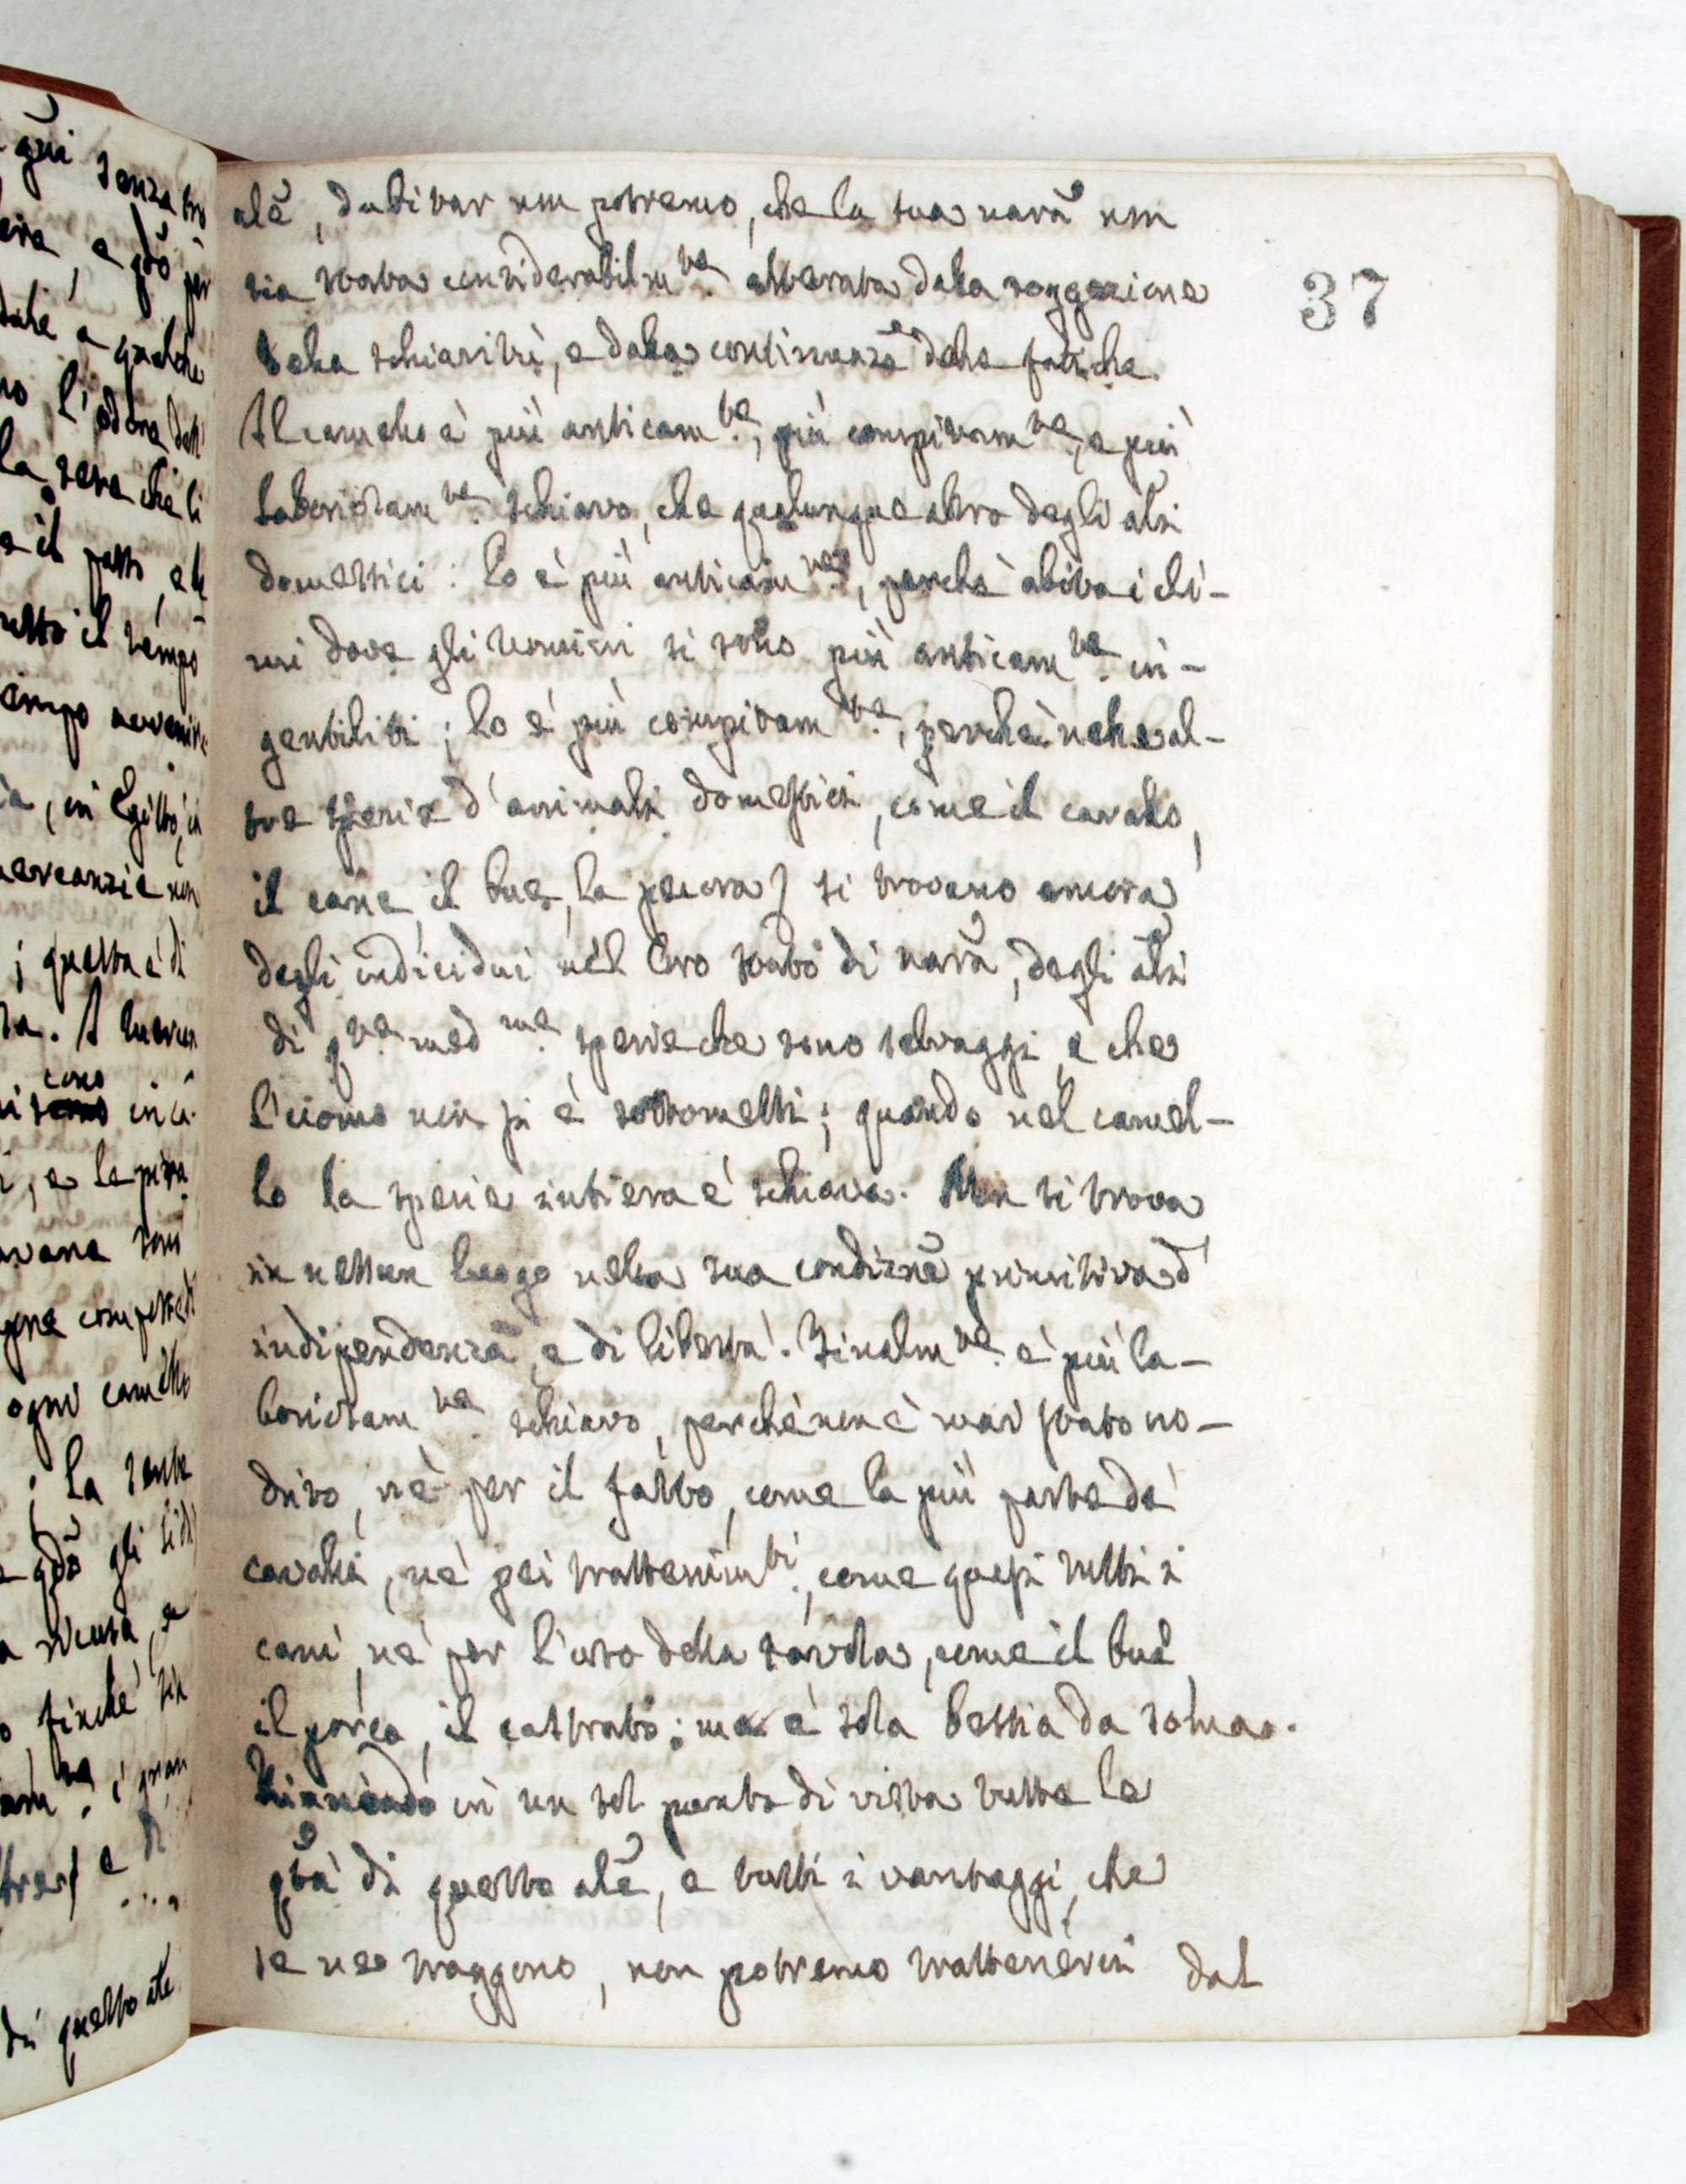 alẽ, dubitar non potremo, che la sua narã non
sia stata considerabilmte. alterata dalla soggezione
della schiavitù, e dalla continuanza delle fatiche.
Il camello è più anticamte., più compitamte., e più
laboriosamte. schiavo, che qualunque altro degli alsi
domestici: lo è più anticamte., perchè abita i cli-
mi dove gli uomini si sono più anticamte. in-
gentiliti; lo è più compitamte., perchè nelle al-
tre spezie d'animali domestici, come il cavallo,
il cane, il bue, la pecora si trovano ancora
degli individui nel loro stato di narã, degli alsi
di qta. medma. spezie che sono selvaggi, e che
l'uomo non si è sottomessi; quando nel camel-
lo la spezie intiera è schiava. Non si trova
in nessun luogo nella sua condiznẽ primitiva d'
indipendenza, e di libertà. Finalmte. è più la-
boriosamte. schiavo, perchè non è mai stato no-
drito, nè per il fasto, come la più parte de'
cavalli, nè pei trattenimti., come quasi tutti i
cani, nè per l'uso della tavola, come il bue
il porco, il castrato; ma è sola bestia da soma.
Riunendo in un sol punto di vista tutte le
qtà di questo alẽ, e tutti i vantaggi, che
se ne traggono, non potremo trattenerci dal
37
qui senza
e qdo per
a qualche
l'odore dell'
la sete che li
e il passo, e le
tutto il tempo
tempo avvenire
, in Egitto, in
mercanzie non
; questa è di
cono
sono
ogni camello
; la sente
qdo gli
finchè
di questo ale